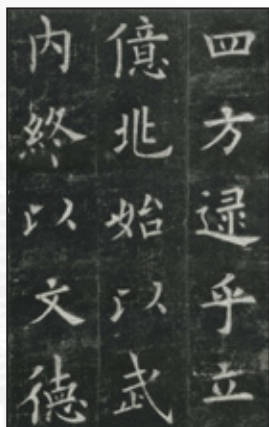 四方逮乎立
億兆始以武
内終以文德